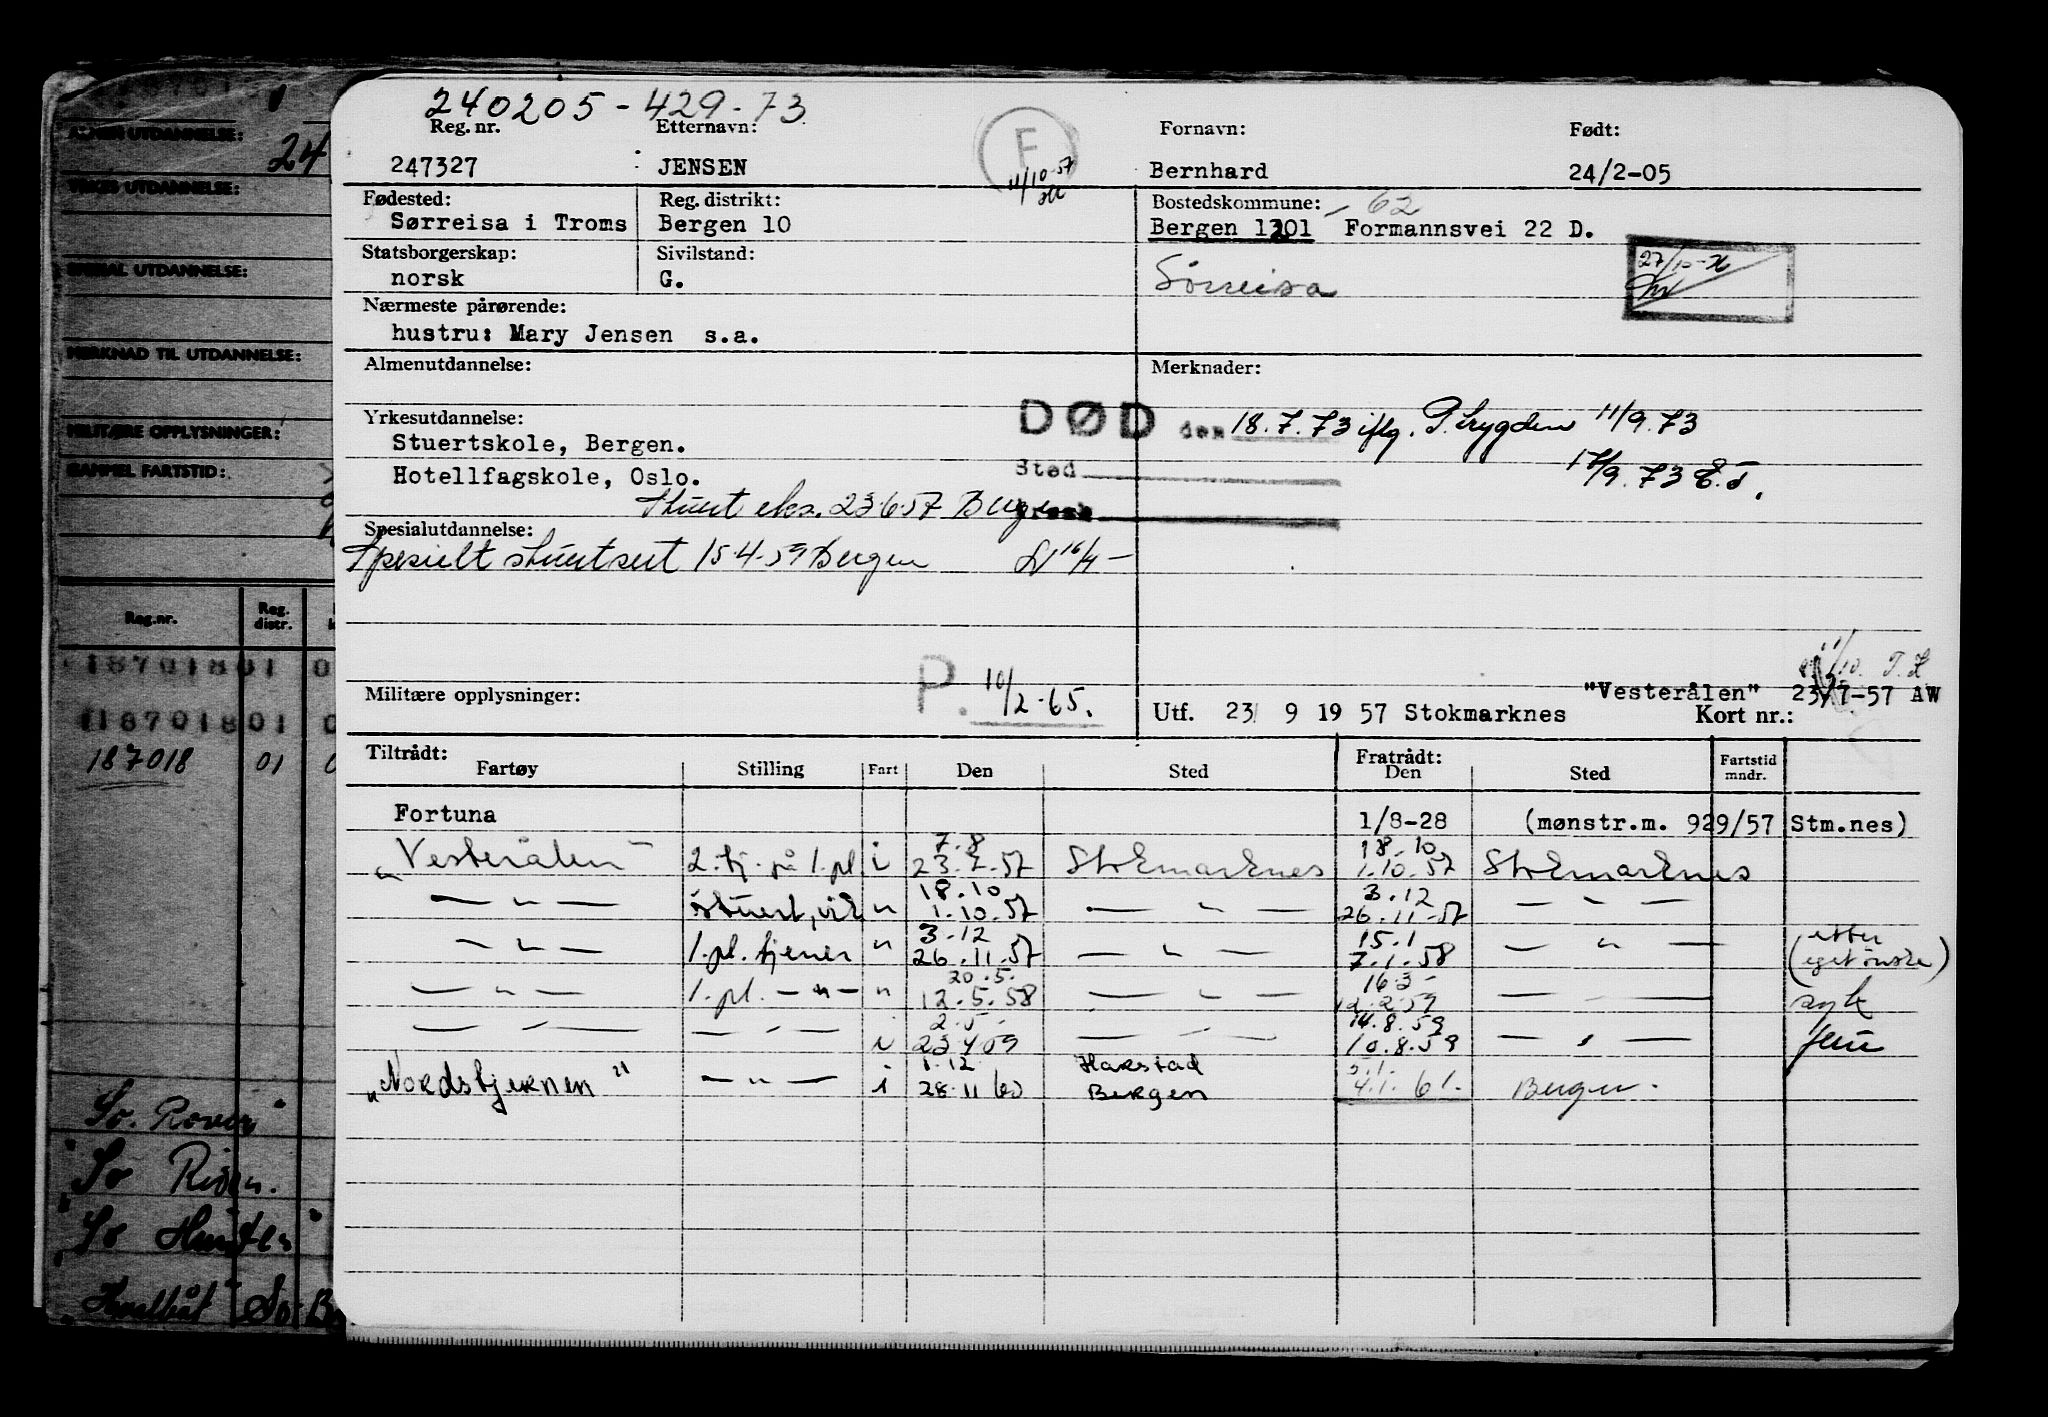 240205-429-73
Reg. nr.
247327
Etternavn:
JENSEN
F
11/10-57
Fornavn:
Bernhard
Født:
24/2-05
Fødested:
Sørreisa i Troms
Reg. distrikt:
Bergen 10
Bostedskommune:
62
Bergen 1201 Formannsvei 22 D.
Statsborgerskap:
norsk
Sivilstand:
G.
Sørreisa
Nærmeste pårørende:
hustru: Mary Jensen s.a.
Almenutdannelse:
Merknader:
Yrkesutdannelse:
Stuertskole, Bergen.
Hotellfagskole, Oslo.
Stuert eks. 23.6.57 Bergen
DØD den 18.7.73 iflg. P.trygden 11/9.73
Sted
17/9.73
Spesialutdannelse:
Spesielt stuertsert 15-4-59 Bergen
P. 10/2-65.
Militære opplysninger:
"Vesterålen" 23/7-57 AW
Utf. 23/ 9 19 57 Stokmarknes
Kort nr.:
Tiltrådt:
Fartøy Stilling Fart Den Sted
Fratrådt:
Den Sted
Fartstid mndr.
Fortuna 1/8-28 (mønstr.m. 929/57 Stm.nes)
7.8 18.10
"Vesterålen" 2.tj. på 1.pl. i 23.7.57 Stokmarknes 1.10.57 Stokmarknes
18.10 3.12
— " — stuert, vik " 1.10.57 — " — 26.11-57 — " —
3.12 15.1 etter
— " — 1.pl. tjener " 26.11.57 — " — 7.1.58 — " — (eget ønske)
20.5. 16.3
— " — 1.pl. — " — " 12.5.58 — " — 12.2.59 — " — syk
2.5. 14.8.59
— " — — " — i 23.4.59 — " — 10.8.59 — " — ferie
1.12 Harstad
"Nordstjernen" — " — i 28.11.60 Bergen 4.1.61. Bergen.
ALMEN UTDANNELSE:
24
YRKES UTDANNELSE:
SPESIAL UTDANNELSE:
MERKNAD TIL UTDANNELSE:
MILITÆRE OPPLYSNINGER:
GAMMEL FARTSTID:
Reg.nr. Reg. distr.
18701801 0
18701801 0
187018 01 0
"So. Rover"
"So Risøn.
"So Hunter"
Hvalbåt So. B